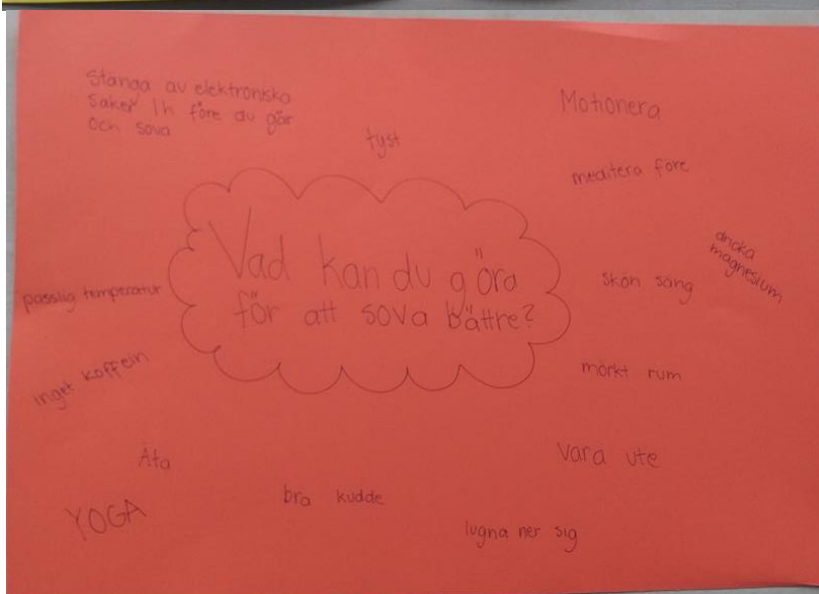 Stänga av elektroniska
saker 1h före du går
och sova
tyst
Motionera
meditera före
dricka
magnesium
Vad kan du göra
för att sova bättre?
skön säng
passlig temperatur
mörkt rum
inget koffein
Äta
vara ute
bra kudde
YOGA
lugna ner sig